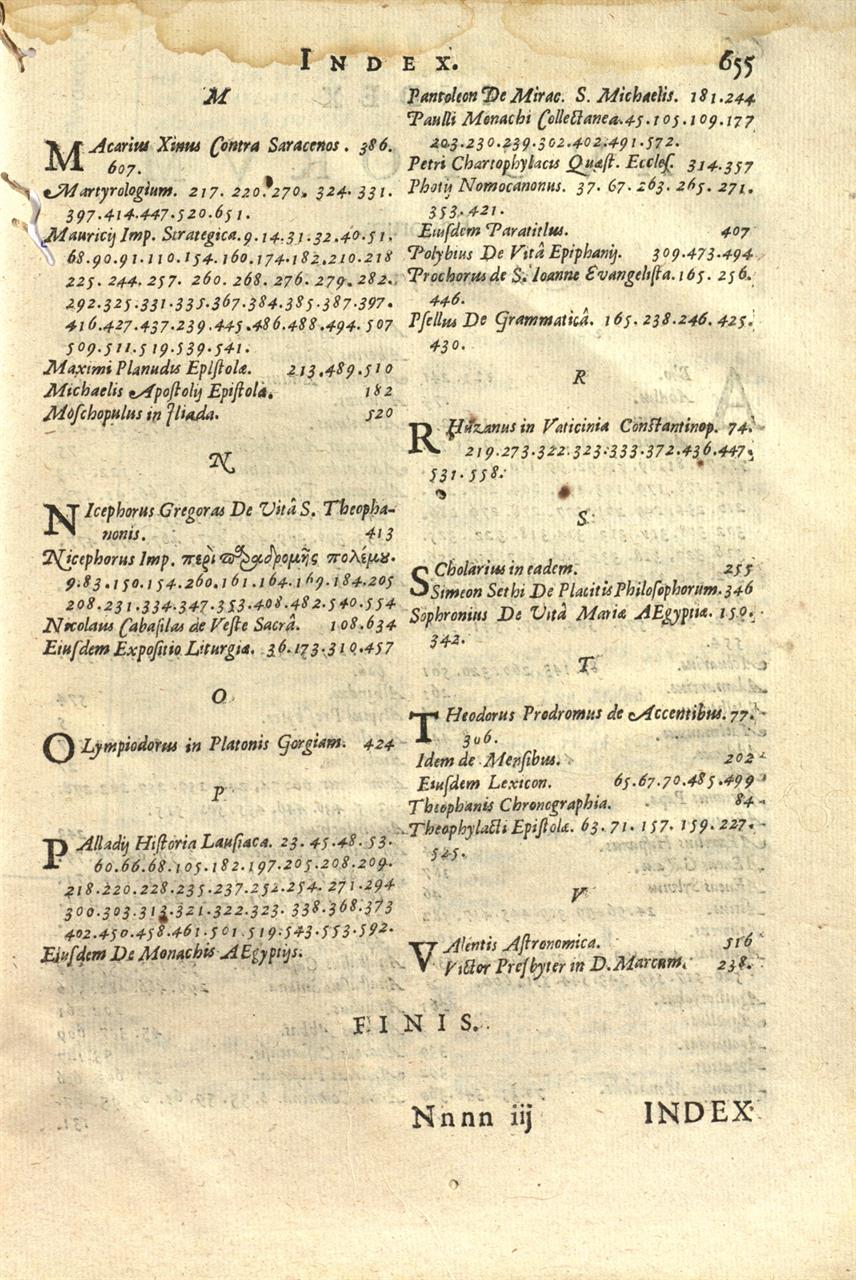 INDEX.
655
M
MAcarius Xinus Contra Saracenos. 386.
607.
Martyrologium. 217. 220. 270. 324. 331.
397.414.447.520.651.
Mauricij Imp. Strategica. 9.14.31.32.40.51.
68.90.91.110.154.160.174.182.210.218
225. 244. 257. 260. 268. 276. 279. 282.
292.325.331.335.367.384.385.387.397.
416.427.437.239.445.486.488.494.507
509.511.519.539.541.
Maximi Planudis Epistolæ. 213.489.510
Michaelis Apostolij Epistola. 182
Moschopulus in Iliada. 520
N
NIcephorus Gregoras De Vitâ S. Theopha-
nonis. 413
Nicephorus Imp. περὶ παραδρομῆς πολέμου.
9.83.150.154.260.161.164.169.184.205
208.231.334.347.353.408.482.540.554
Nicolaus Cabasilas de Veste Sacrâ. 108.634
Eiusdem Expositio Liturgiæ. 36.173.310.457
O
OLympiodorus in Platonis Gorgiam. 424
P
PAlladij Historia Lausiaca. 23. 45.48.53.
60.66.68.105.182.197.205.208.209.
218.220.228.235.237.252.254.271.294
300.303.313.321.322.323.338.368.373
402.450.458.461.501.519.543.553.592.
Eiusdem De Monachis AEgyptijs.
Pantoleon De Mirac. S. Michaelis. 181.244
Paulli Monachi Collectanea.45.105.109.177
203.230.239.302.402.491.572.
Petri Chartophylacis Quæst. Eccles. 314.357
Photij Nomocanonus. 37. 67. 263. 265. 271.
353.421.
Eiusdem Paratitlus. 407
Polybius De Vitâ Epiphanij. 309.473.494
Prochorus de S. Ioanne Evangelista.165. 256.
446.
Psellus De Grammaticâ. 165. 238.246. 425.
430.
R
RHuzanus in Vaticinia Constantinop. 74.
219.273.322.323.333.372.436.447.
531.558.
S
SCholarius in eadem. 255
Simeon Sethi De Placitis Philosophorum.346
Sophronius De Vitâ Mariæ AEgyptiæ. 150.
342.
T
THeodorus Prodromus de Accentibus. 77.
306.
Idem de Mensibus. 202
Eiusdem Lexicon. 65.67.70.485.499
Theophanis Chronographia. 84
Theophylacti Epistolæ. 63. 71. 157. 159. 227.
525.
V
VAlentis Astronomica. 516
Victor Presbyter in D. Marcum. 238.
FINIS.
Nnnn iij
INDEX